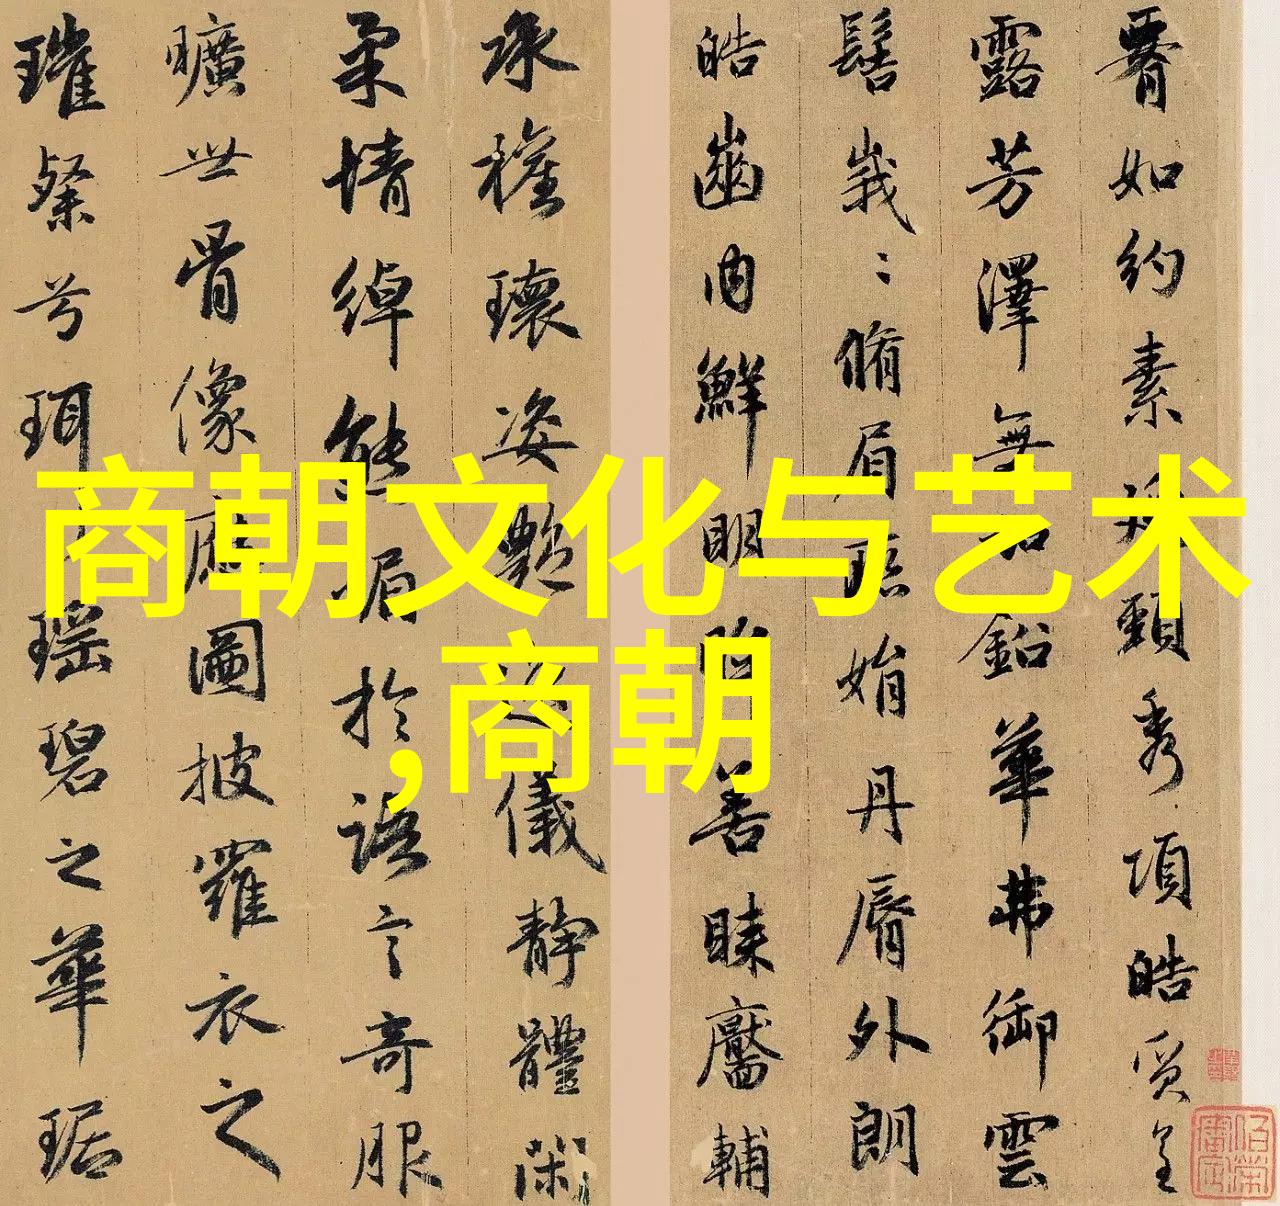 商朝文化与艺术
,商朝
如約素延頸秀項皓質呈
露芳澤無加鉛華弗御雲
髻峩〻脩眉聯娟丹脣外朗
皓齒内鮮明眸善睞靨輔
承權瓌姿艷逸儀靜體閑
柔情綽態媚於語言奇服
曠世骨像應圖披羅衣之
璀粲兮珥瑤碧之華琚